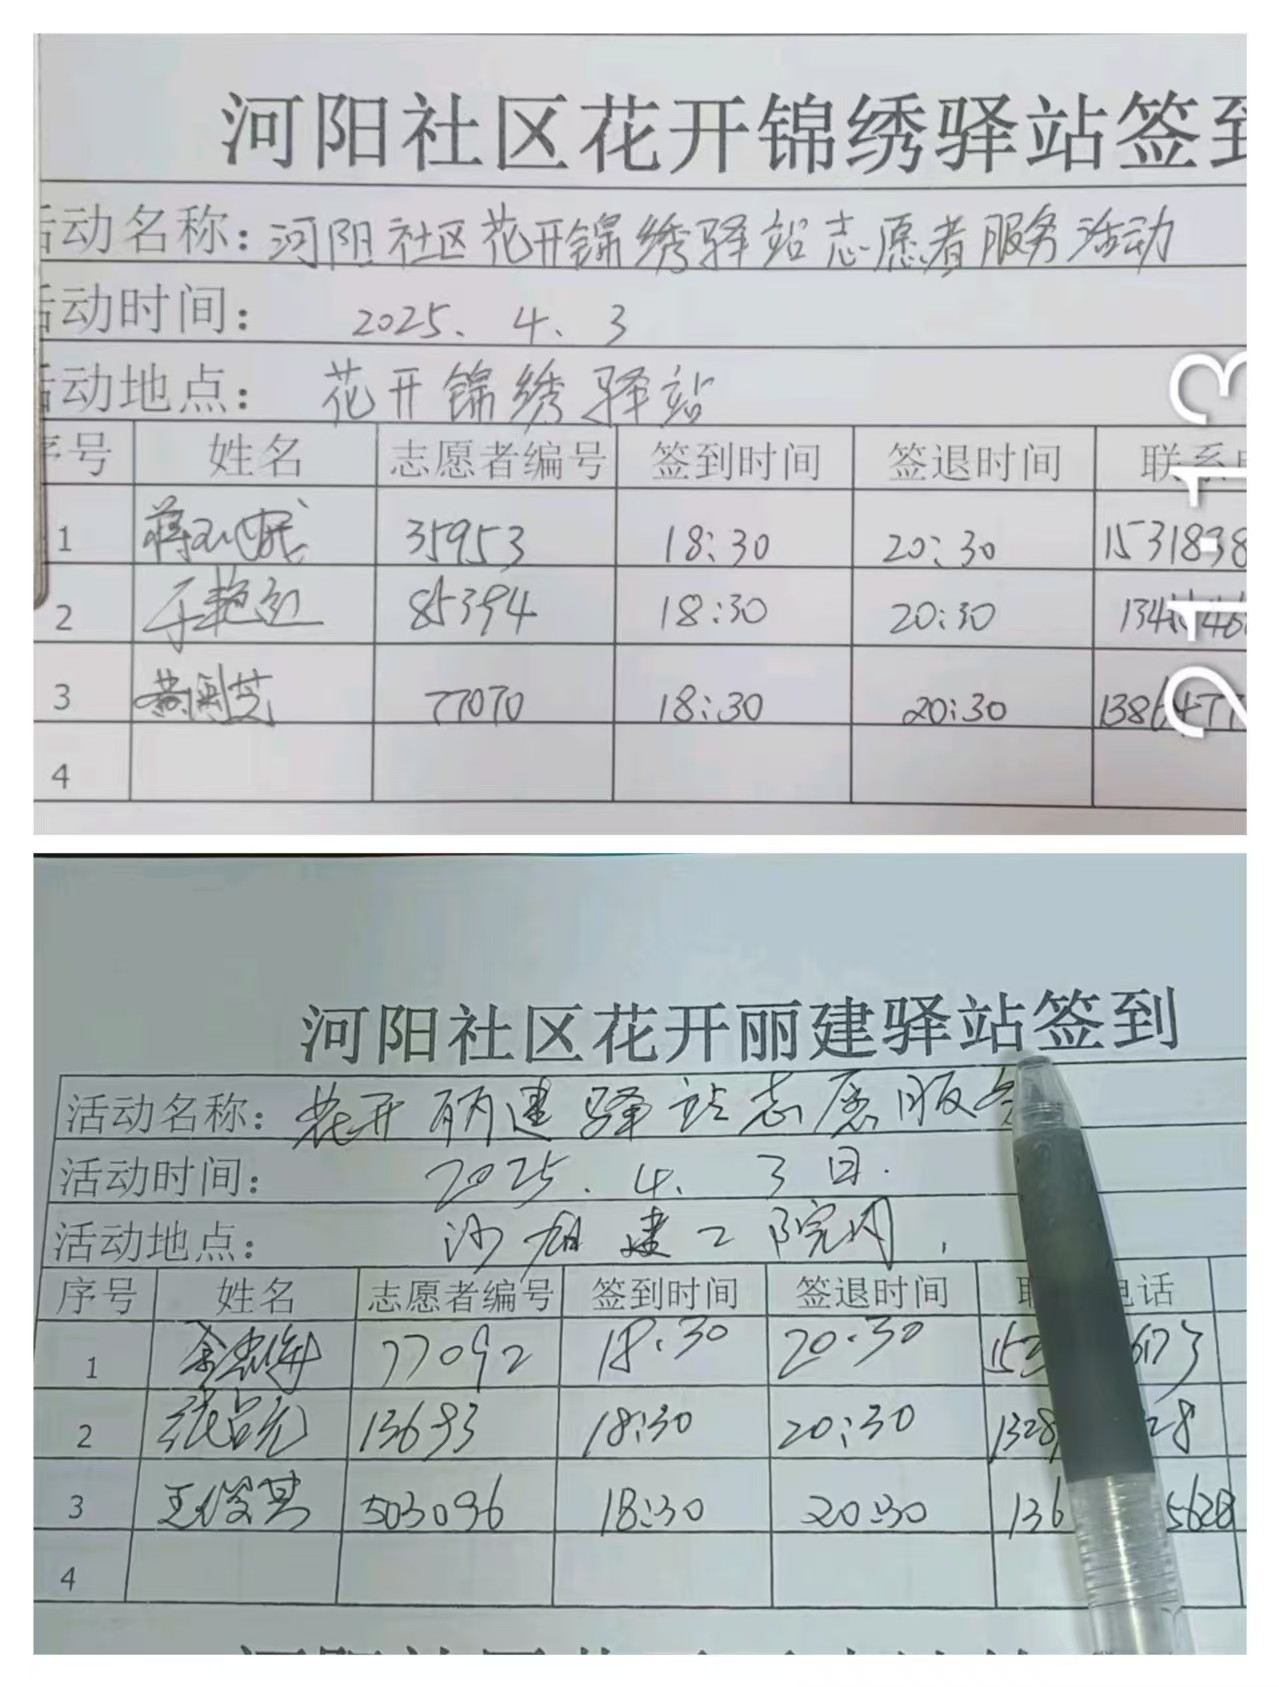 河阳社区花开锦绣驿站签到
活动名称：河阳社区花开锦绣驿站志愿者服务活动
活动时间： 2025. 4. 3
活动地点： 花开锦绣驿站
序号 姓名 志愿者编号 签到时间 签退时间 联系
1 35953 18:30 20:30 1531838
2 于艳红 85394 18:30 20:30
3 77070 18:30 20:30
4
21:13
河阳社区花开丽建驿站签到
活动名称：花开丽建驿站志愿服务
活动时间： 2025. 4. 3日.
活动地点： 建工院内.
序号 姓名 志愿者编号 签到时间 签退时间 电话
1 77092 18:30 20:30 153 6173
2 13693 18:30 20:30 1328 28
3 王俊其 503096 18:30 20:30 136 5628
4